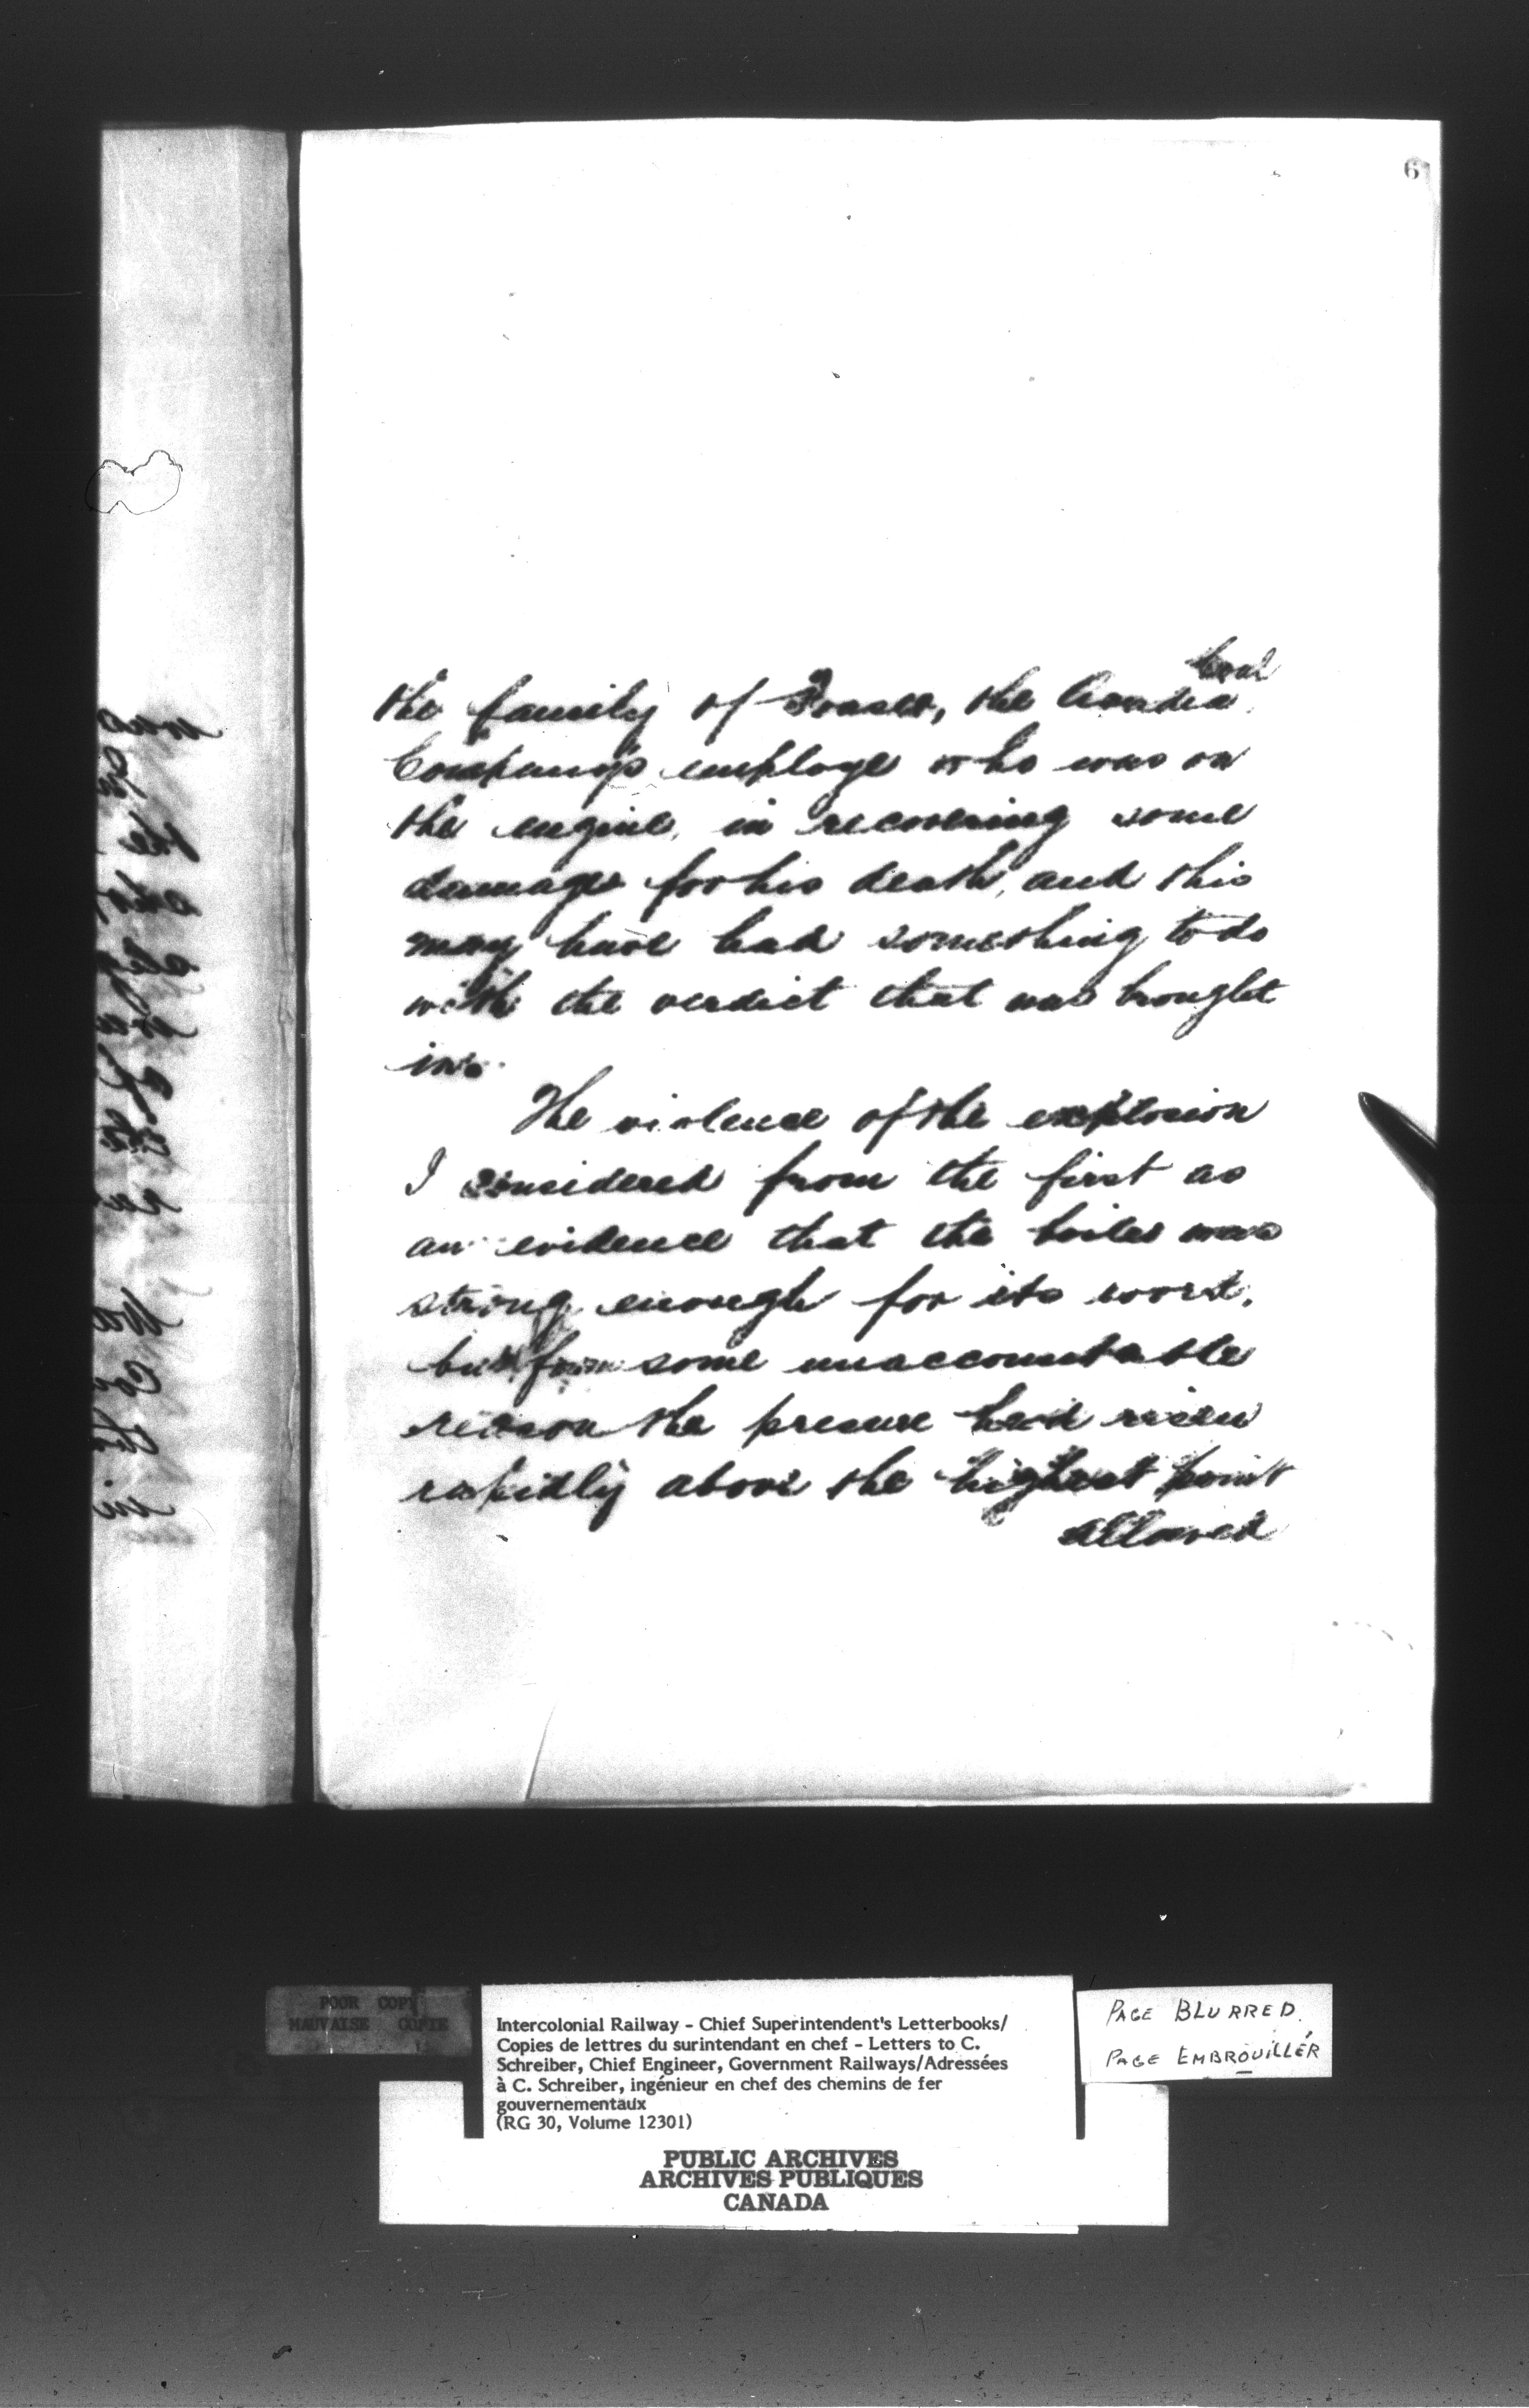 6
Coal
the family of Fraser, the Acadia
Company's employe who was on
the engine, in recovering some
damages for his death, and this
may have had something to do
with the verdict that was brought
in.
The violence of the explosion
I considered from the first as
an evidence that the boiler was
strong enough for its work,
but from some unaccountable
reason the pressure had risen
rapidly above the highest point
allowed
POOR COPY
MAUVAISE COPIE
Intercolonial Railway - Chief Superintendent's Letterbooks/
Copies de lettres du surintendant en chef - Letters to C.
Schreiber, Chief Engineer, Government Railways/Adressées
à C. Schreiber, ingénieur en chef des chemins de fer
gouvernementaux
(RG 30, Volume 12301)
PAGE BLURRED.
PAGE EMBROUILLÉR
PUBLIC ARCHIVES
ARCHIVES PUBLIQUES
CANADA